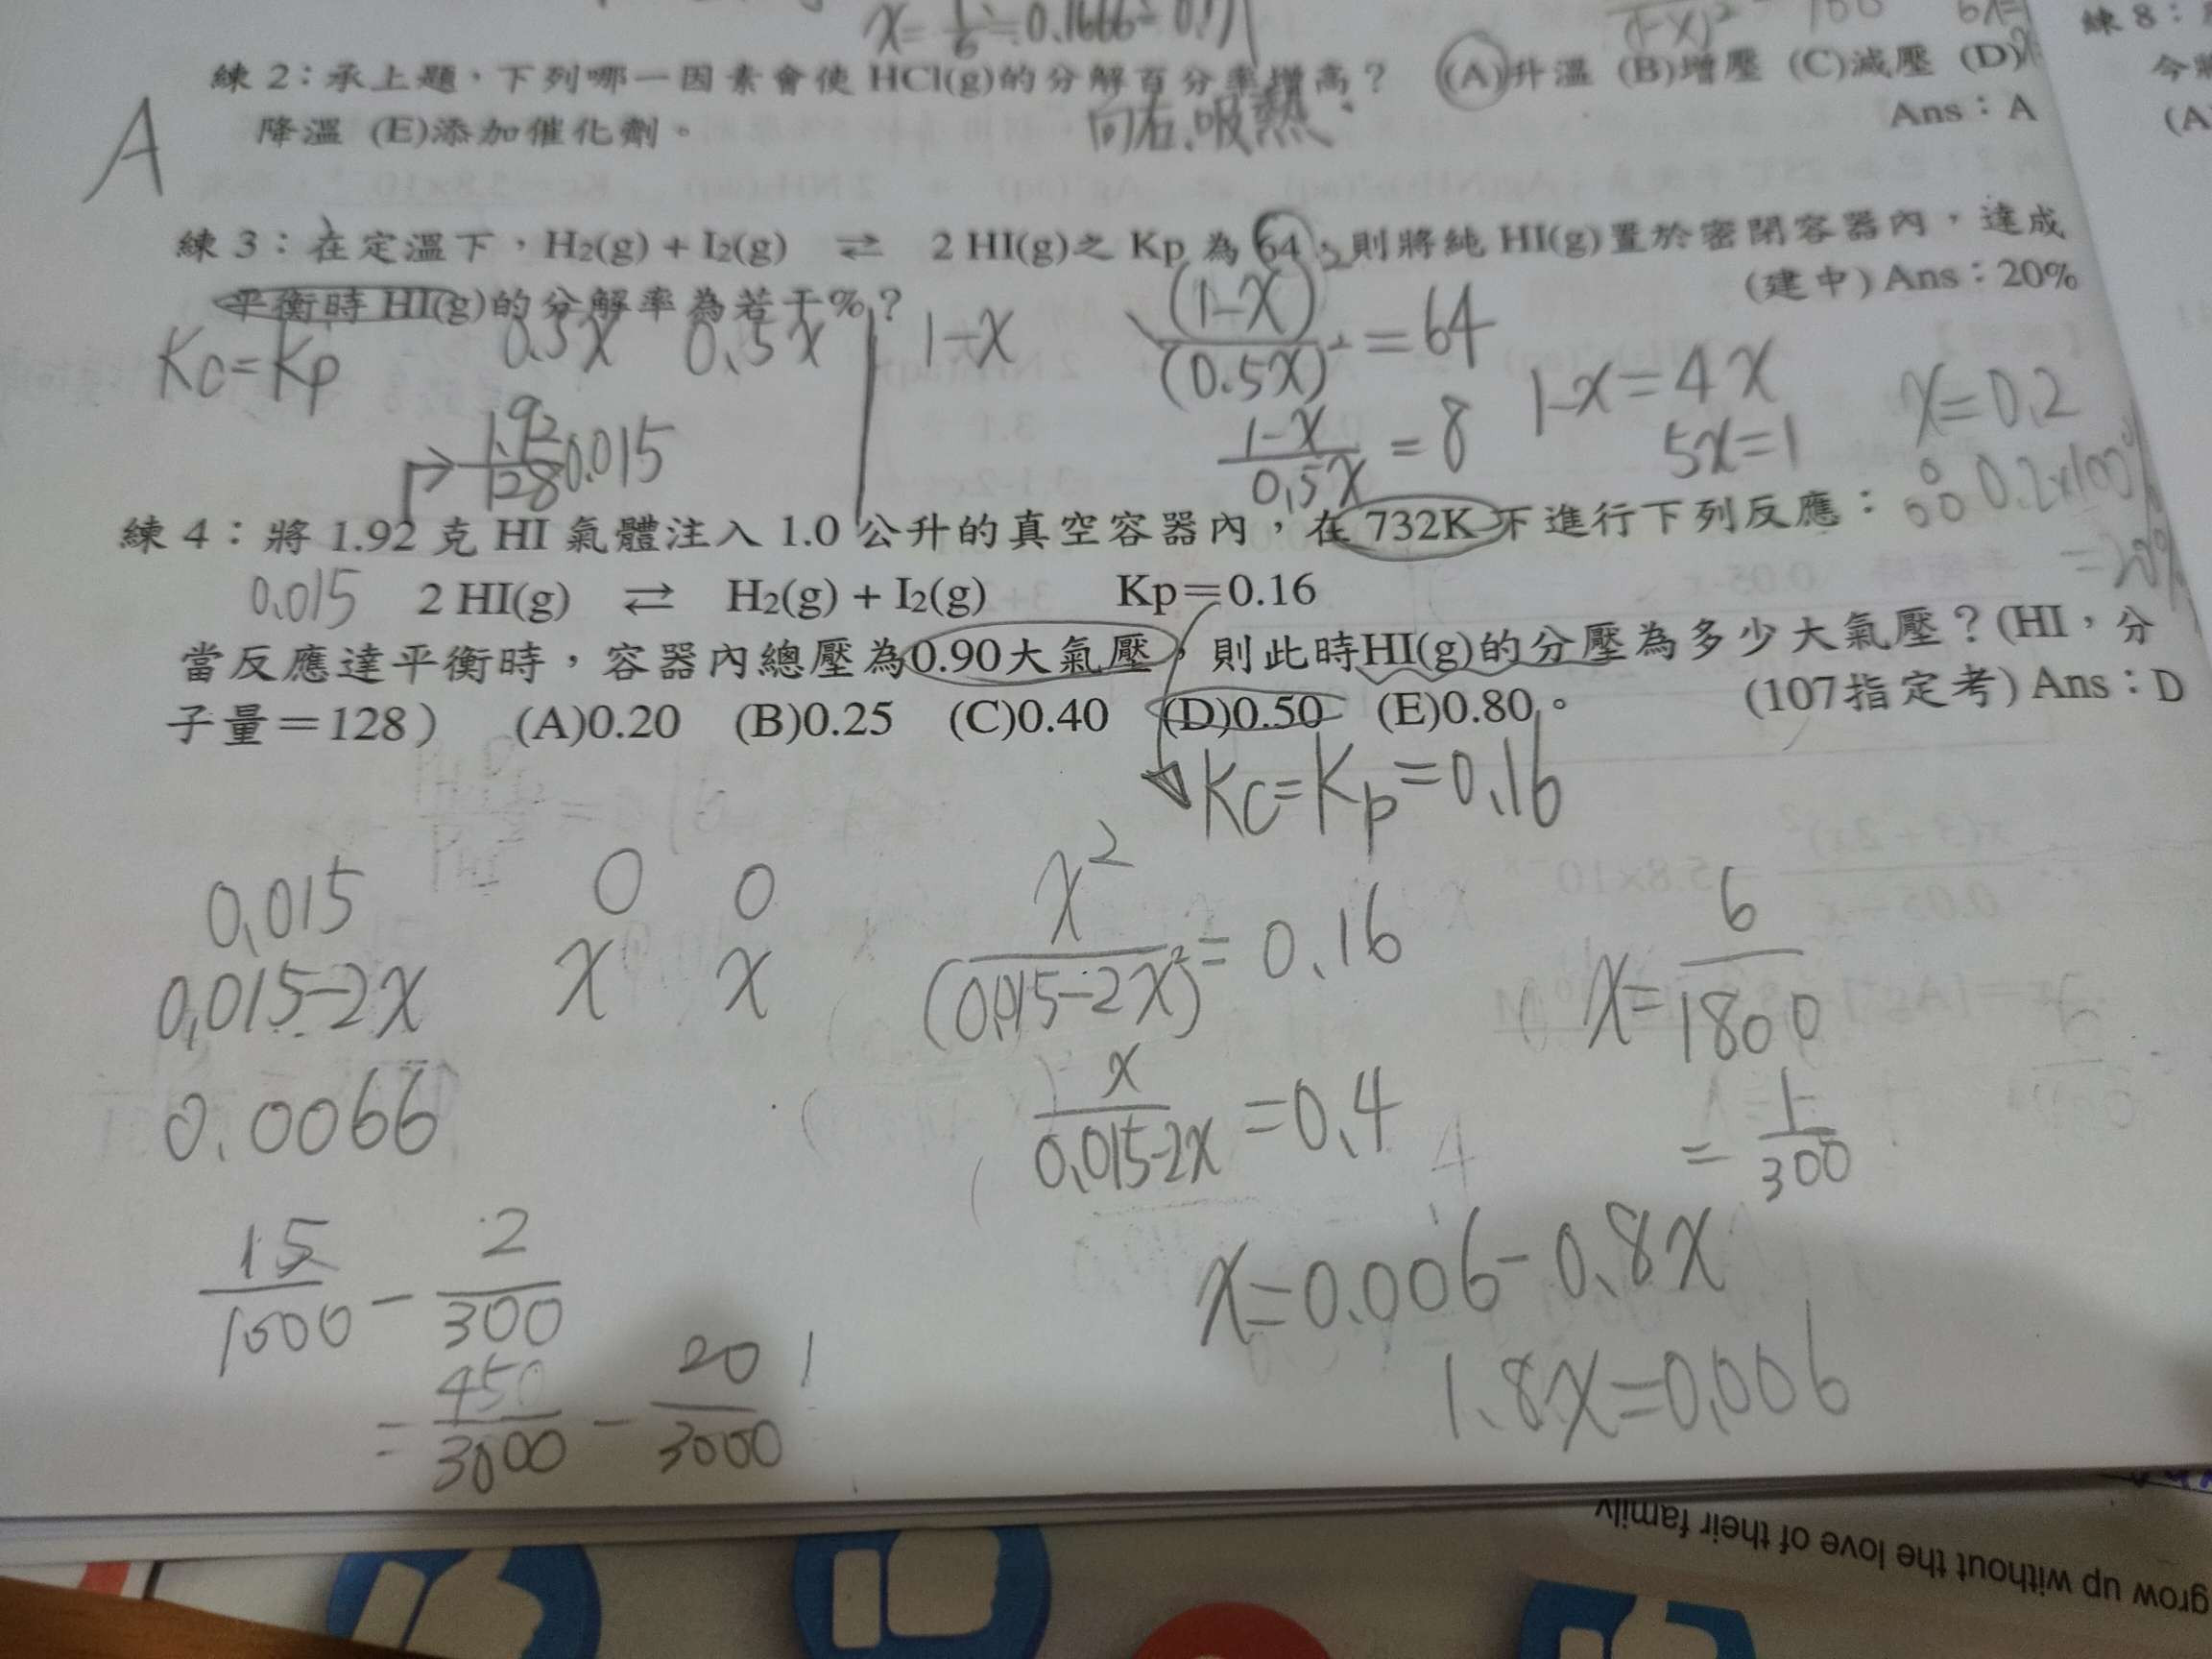 x = 1/6 = 0.1666
練 2：承上題，下列哪一因素會使 HCl(g)的分解百分率增高？ (A)升溫 (B)增壓 (C)減壓 (D)
降溫 (E)添加催化劑。 向右、吸熱 Ans：A
A
練 8：
今
(A
練 3：在定溫下，H₂(g) + I₂(g) ⇄ 2 HI(g)之 Kp 為 64，則將純 HI(g)置於密閉容器內，達成
平衡時 HI(g)的分解率為若干%？ (建中) Ans：20%
Kc = Kp 0.5x 0.5x 1-x
(1-x)²/(0.5x)² = 64
(1-x)/(0.5x) = 8
1-x = 4x
5x = 1
x = 0.2
∴ 0.2×100%
= 20%
→ 1.92/128 0.015
練 4：將 1.92 克 HI 氣體注入 1.0 公升的真空容器內，在 732K 下進行下列反應：
0.015 2 HI(g) ⇄ H₂(g) + I₂(g) Kp＝0.16
當反應達平衡時，容器內總壓為0.90大氣壓，則此時HI(g)的分壓為多少大氣壓？(HI，分
子量＝128） (A)0.20 (B)0.25 (C)0.40 (D)0.50 (E)0.80。 (107指定考) Ans：D
Kc = Kp = 0.16
0.015 0 0
0.015-2x x x
0.0066
x²/(0.015-2x)² = 0.16
x/(0.015-2x) = 0.4
x = 0.006 - 0.8x
1.8x = 0.006
x = 6/1800
= 1/300
15/1000 - 2/300
= 450/3000 - 20/3000
grow up without the love of their family